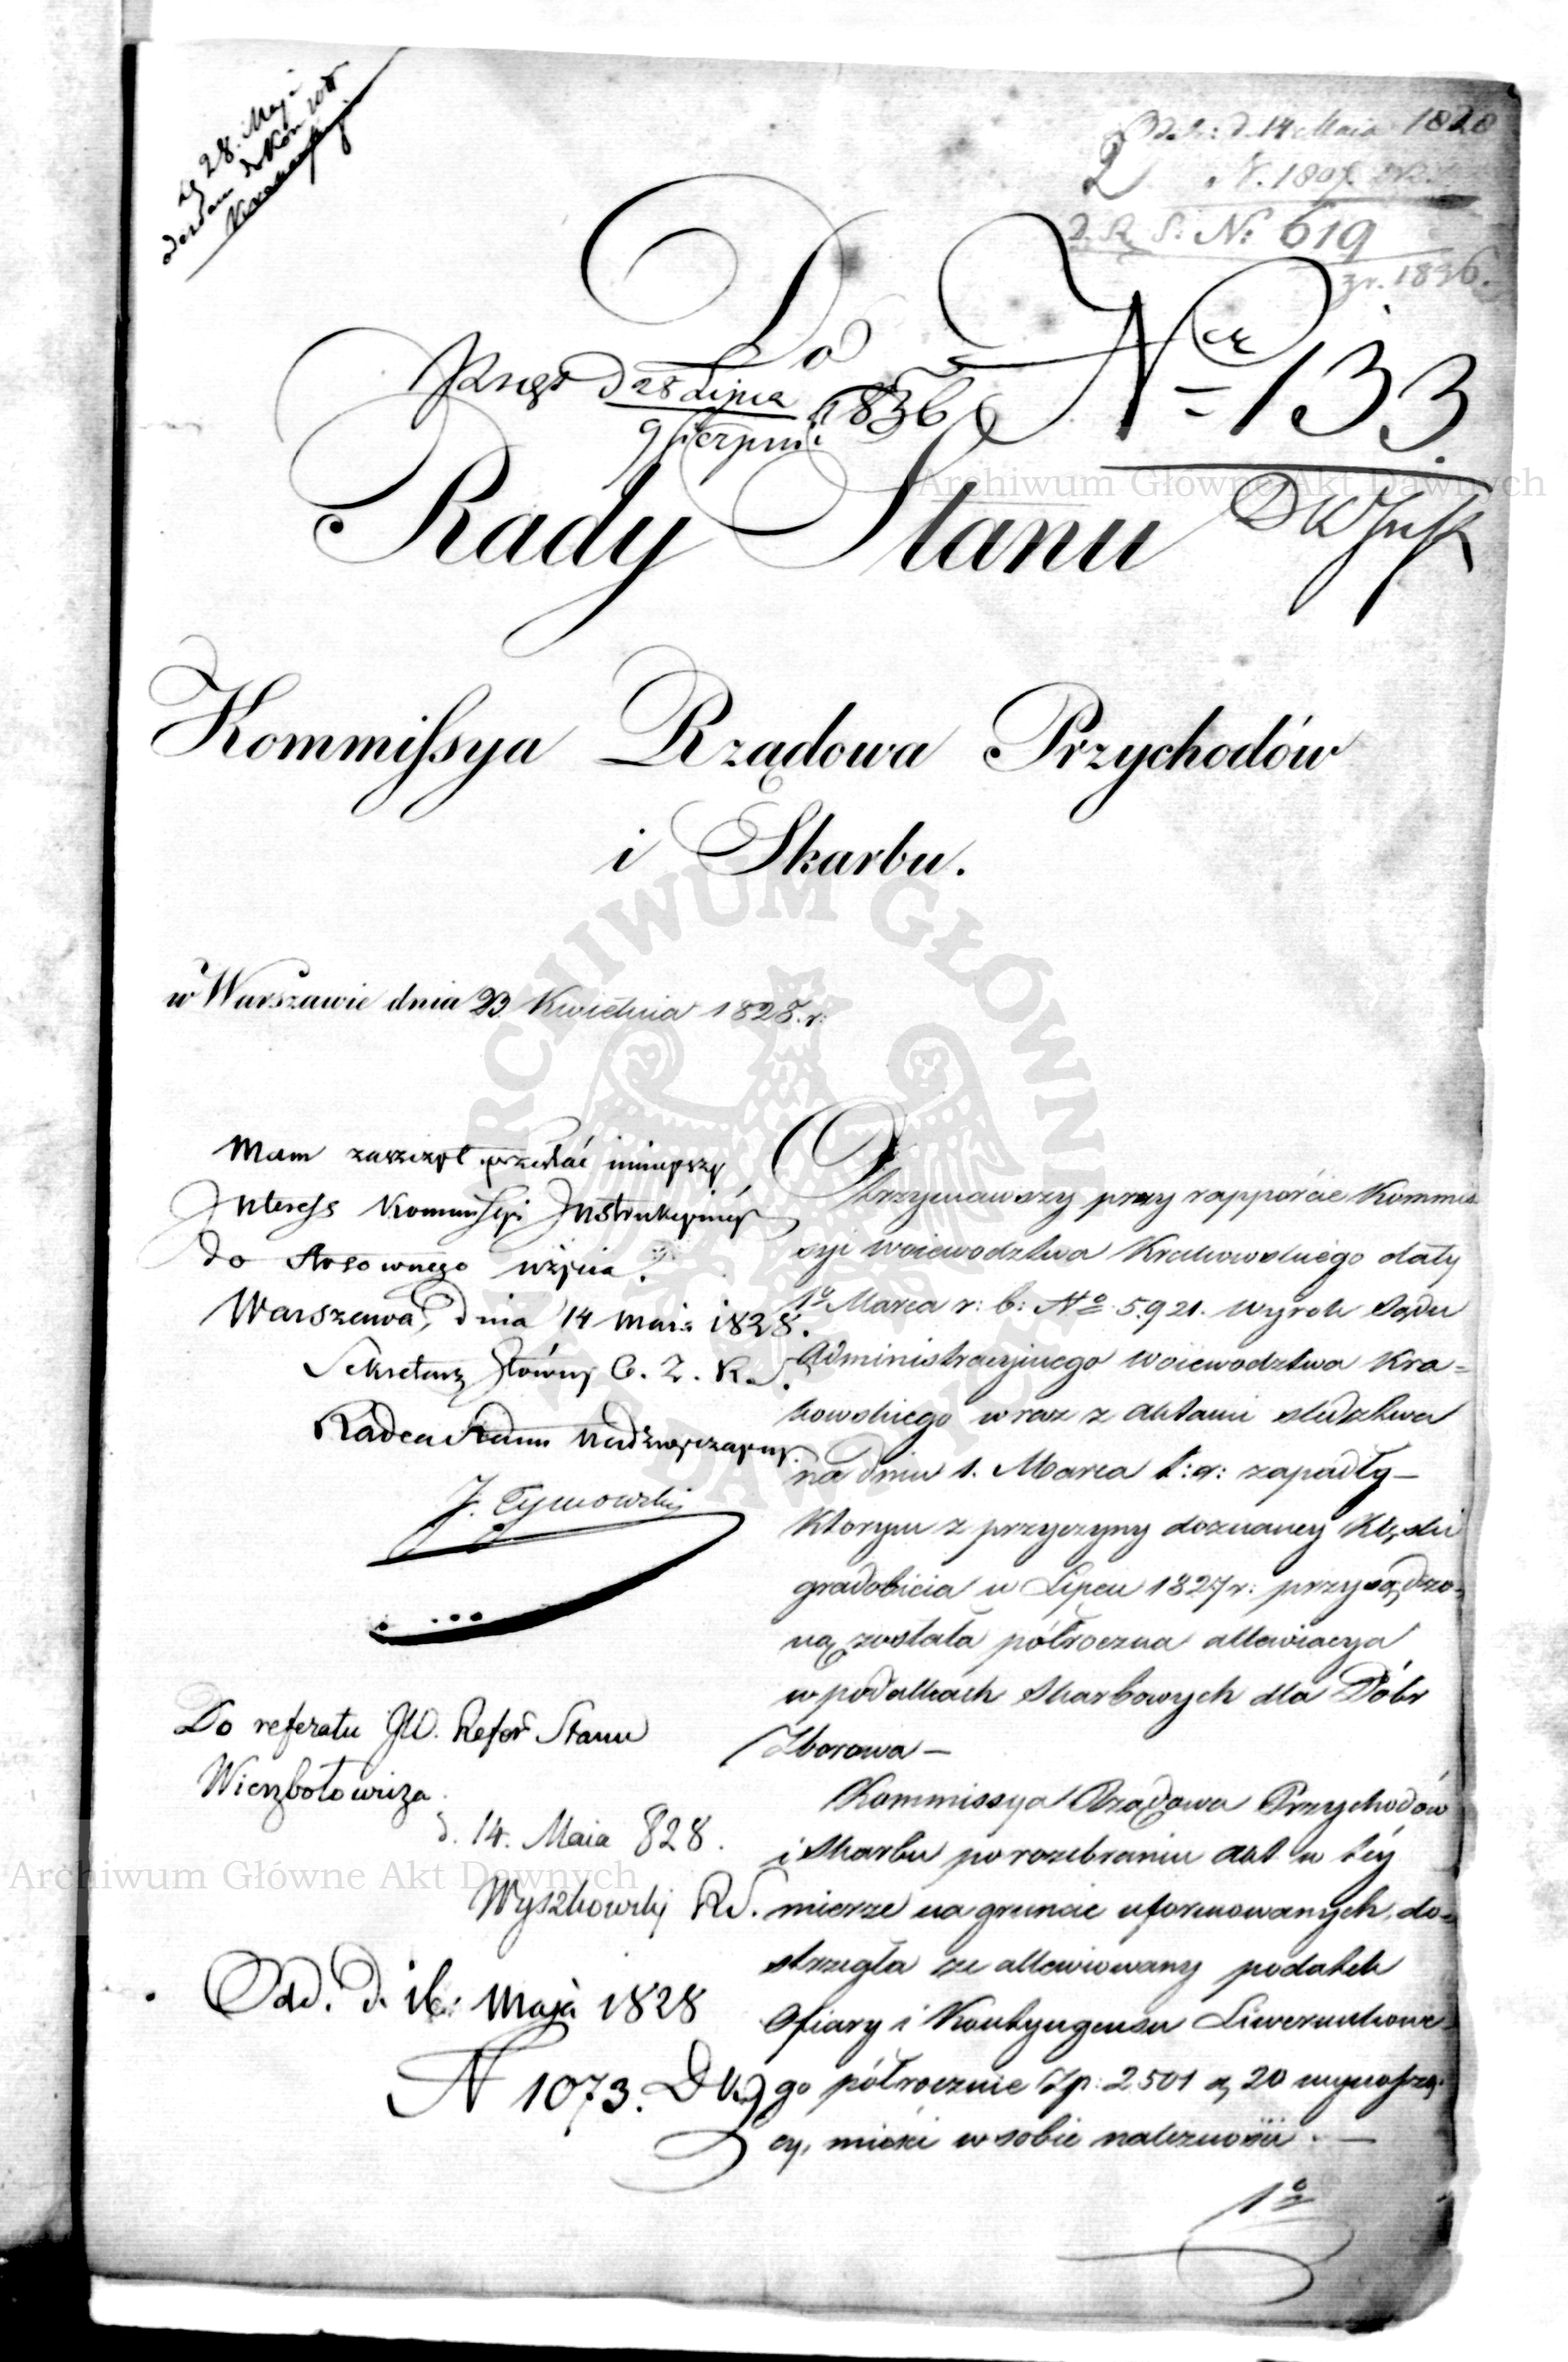 dg 28. Maja
Odd: d. 14 Maia 1828
N. 1807
D. R. S: N: 619
z r. 1836.
Do
Nr 133.
Przeszł d 28 Lipca 1836
9 Sierpni
Rady Stanu
Kommissya Rządowa Przychodów
i Skarbu.
w Warszawie dnia 23 Kwietnia 1828. r:
Mam zaszczyt przesłać ninieyszy
Interess Kommissyi Instrukcyiney
do stosownego użycia.
Warszawa, dnia 14 Maia 1828.
Sekretarz Główny C. Z. R. S.
Radca Stanu Nadzwyczayny.
J. Tymowski
Do referatu JW. Refer Stanu
Wierzbołowicza
d. 14. Maia 828.
Wyszkowski RS.
Odd. D. 16: Maja 1828
N 1073. DKJ
Otrzymawszy przy rapporcie Kommis
syi Woiewodztwa Krakowskiego daty
1o Marca r: b: No 5.921. wyrok Sądu
Administracyjnego Woiewodztwa Kra=
kowskiego wraz z aktami śledztwa
na dniu 1. Marca t: r: zapadły—
Którym z przyczyny doznaney klęski
gradobicia w Lipcu 1827 r: przysądzo-
ną została półroczna allewiacya
w podatkach Skarbowych dla Dóbr
Zborowa—
Kommissya Rządowa Przychodów
i Skarbu po rozebraniu akt w téy
mierze na gruncie uformowanych, do-
strzegła że allewiowany podatek
Ofiary i Kontyngensu Liwerunkowe-
go półrocznie Zp: 2.501 g 20 wynoszą-
cy, mieści w sobie należności.—
1o
Archiwum Główne Akt Dawnych
Archiwum Główne Akt Dawnych
ARCHIWUM GŁÓWNE AKT DAWNYCH